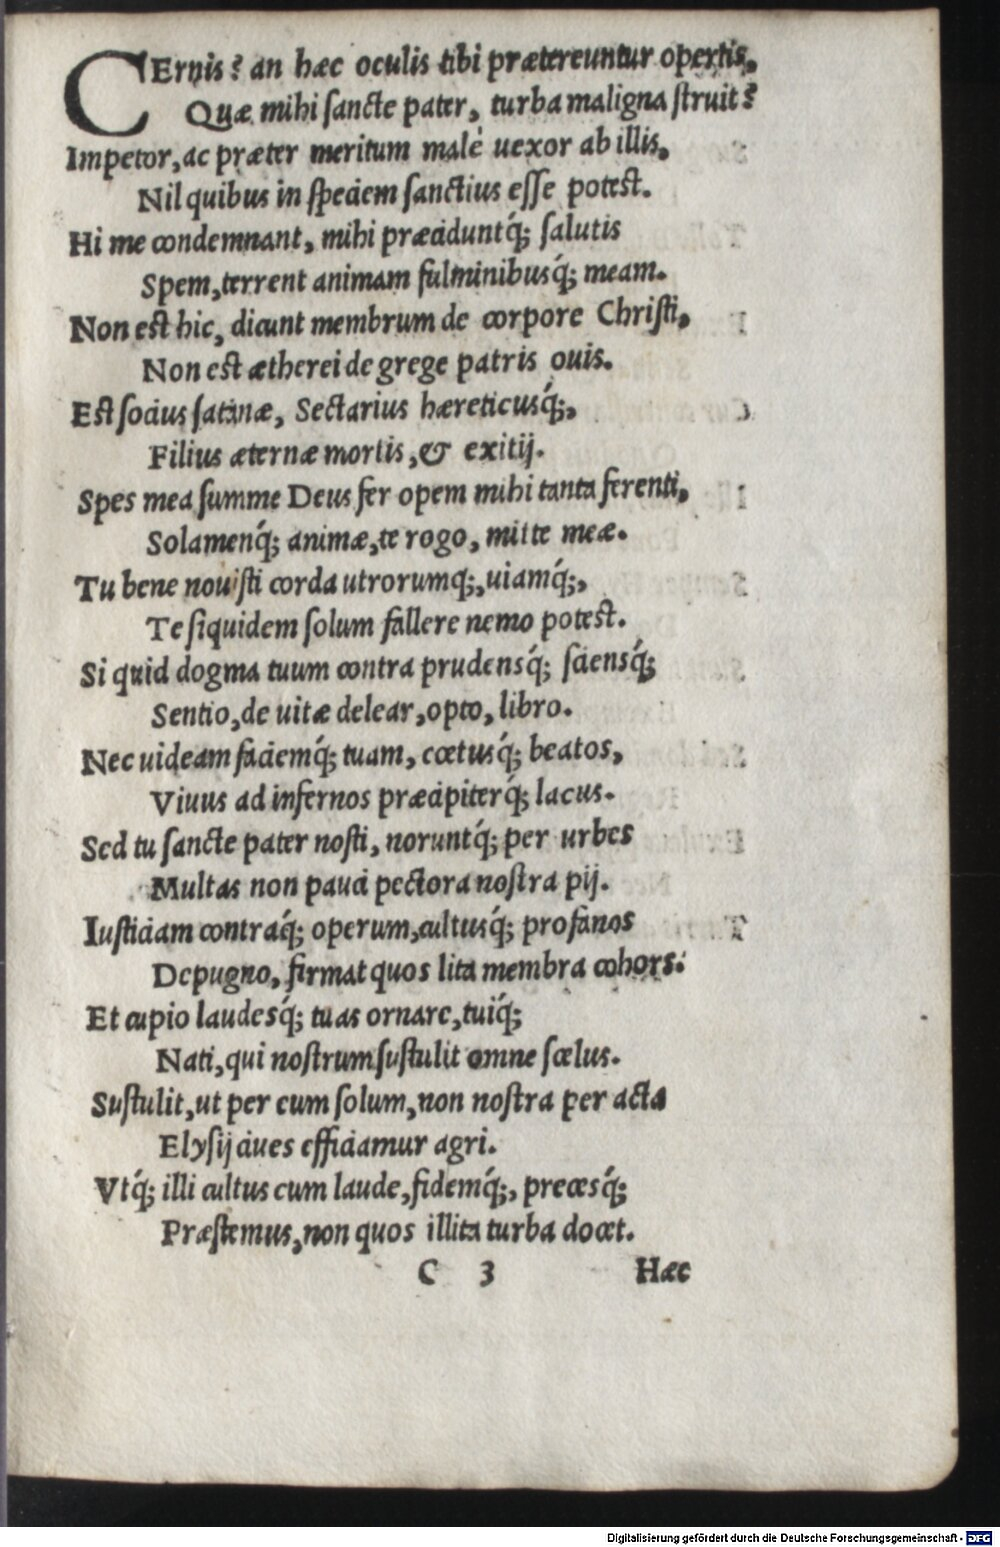 CErnis? an hæc oculis tibi prætereuntur opertis,
Quæ mihi ſancte pater, turba maligna ſtruit?
Impetor, ac præter meritum malè uexor ab illis,
Nil quibus in ſpeciem ſanctius eſſe poteſt.
Hi me condemnant, mihi præciduntq́; ſalutis
Spem, terrent animam fulminibusq́; meam.
Non eſt hic, dicunt membrum de corpore Chriſti,
Non eſt ætherei de grege patris ouis.
Eſt ſocius ſatanæ, Sectarius hæreticusq́;,
Filius æternæ mortis, & exitij.
Spes mea ſumme Deus fer opem mihi tanta ferenti,
Solamenq́; animæ, te rogo, mitte meæ.
Tu bene nouiſti corda utrorumq;, uiamq́;,
Te ſiquidem ſolum fallere nemo poteſt.
Si quid dogma tuum contra prudensq́; ſciensq́;
Sentio, de uitæ delear, opto, libro.
Nec uideam faciemq́; tuam, cœtusq́; beatos,
Viuus ad infernos præcipiterq́; lacus.
Sed tu ſancte pater noſti, noruntq́; per urbes
Multas non pauci pectora noſtra pij.
Iuſticiam contraq́; operum, cultusq́; profanos
Depugno, firmat quos lita membra cohors.
Et cupio laudesq́; tuas ornare, tuiq́;
Nati, qui noſtrum ſuſtulit omne ſcelus.
Suſtulit, ut per eum ſolum, non noſtra per acta
Elyſij ciues efficiamur agri.
Vtq́; illi cultus cum laude, fidemq́;, precesq́;
Præſtemus, non quos illita turba docet.
C 3 Hæc
Digitalisierung gefördert durch die Deutsche Forschungsgemeinschaft - DFG